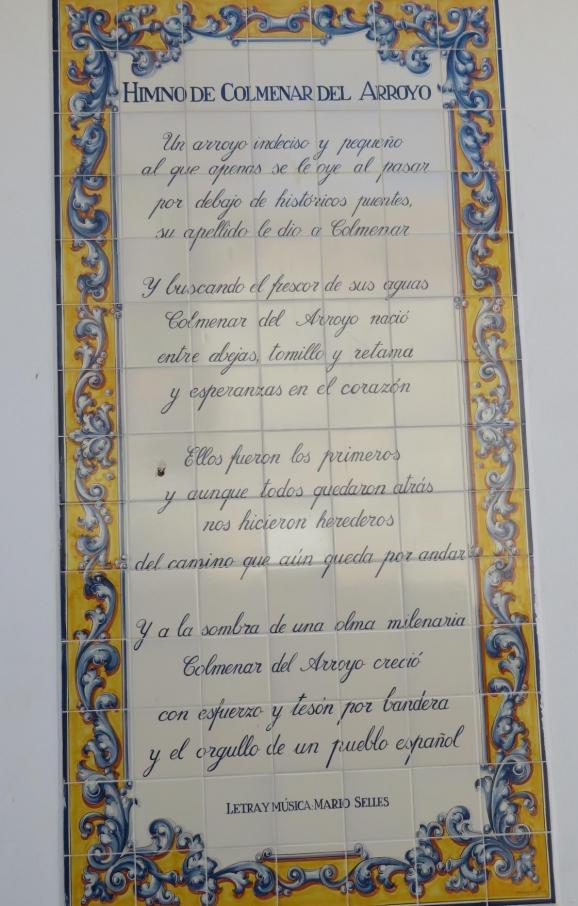 HIMNO DE COLMENAR DEL ARROYO
Un arroyo indeciso y pequeño
al que apenas se le oye al pasar
por debajo de históricos puentes,
su apellido le dio a Colmenar
Y buscando el frescor de sus aguas
Colmenar del Arroyo nació
entre abejas, tomillo y retama
y esperanzas en el corazón
Ellos fueron los primeros
y aunque todos quedaron atrás
nos hicieron herederos
del camino que aún queda por andar
Y a la sombra de una olma milenaria
Colmenar del Arroyo creció
con esfuerzo y tesón por bandera
y el orgullo de un pueblo español
LETRA Y MÚSICA: MARIO SELLES